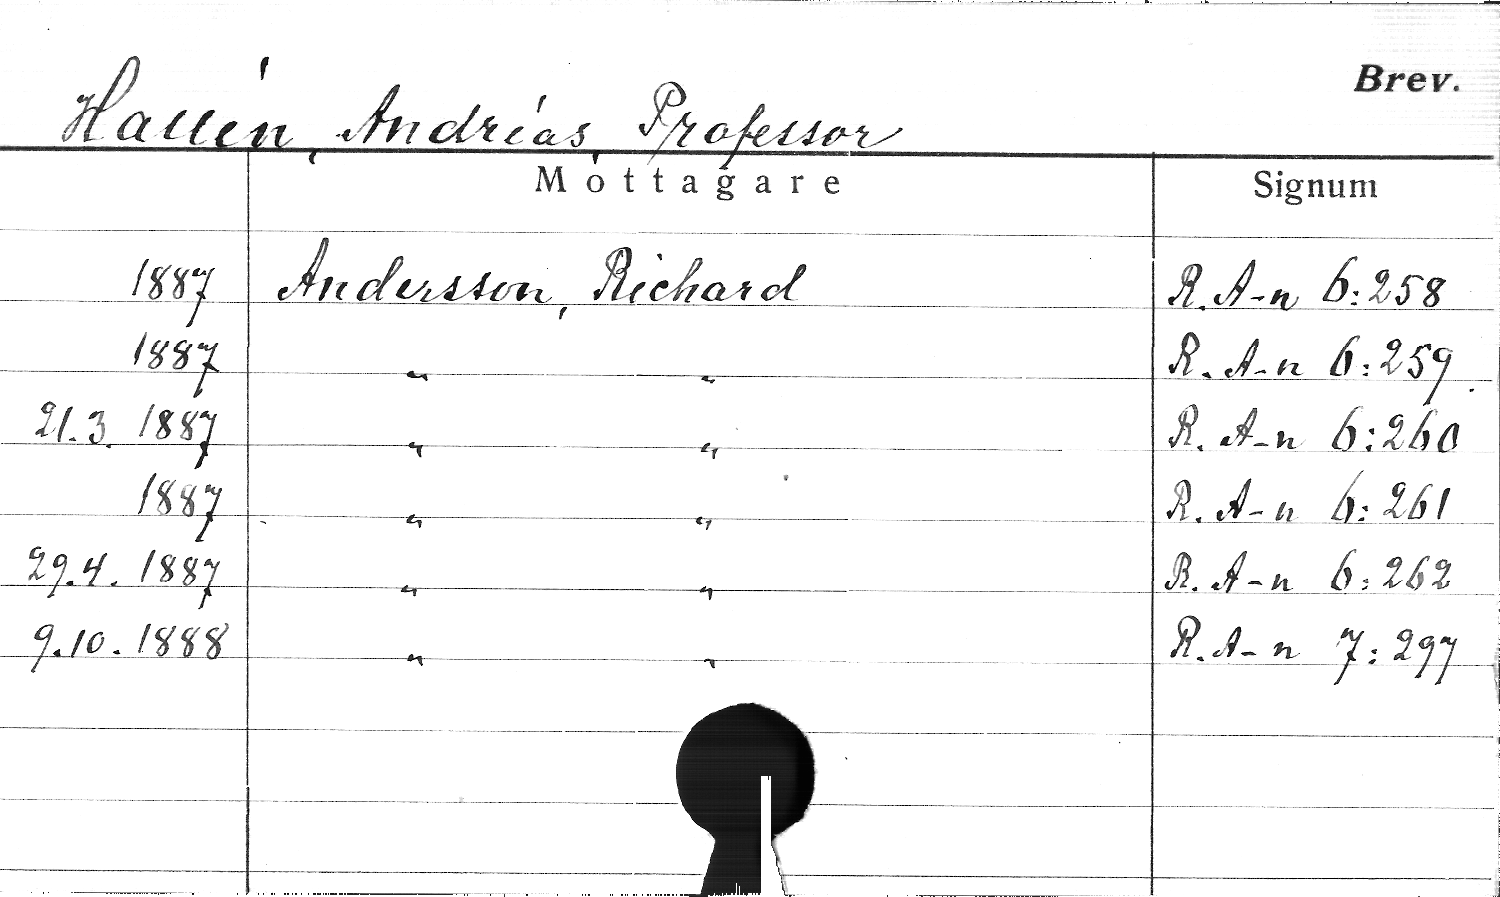 Brev.
Hallén, Andréas, Professor
Mottagare Signum
1887 Andersson, Richard R. A-n 6:258
1887 „ „ R. A-n 6:259.
21.3. 1887 „ „ R. A-n 6:260
1887 „ „ R. A-n 6:261
29.4. 1887 „ „ R. A-n 6:262
9.10. 1888 „ „ R. A-n 7:297